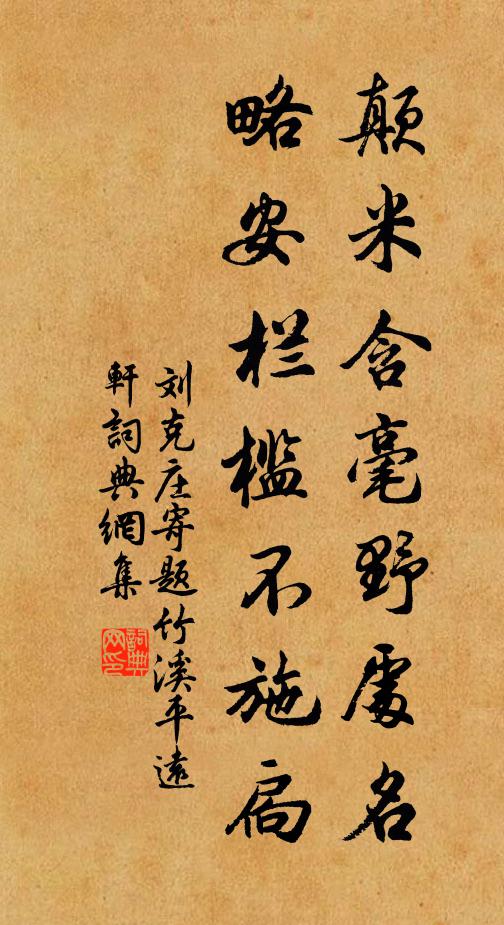 颠米含毫野處名
略安栏槛不施扃
刘克庄寄题竹溪平遠
軒詞典網集
詞典网印